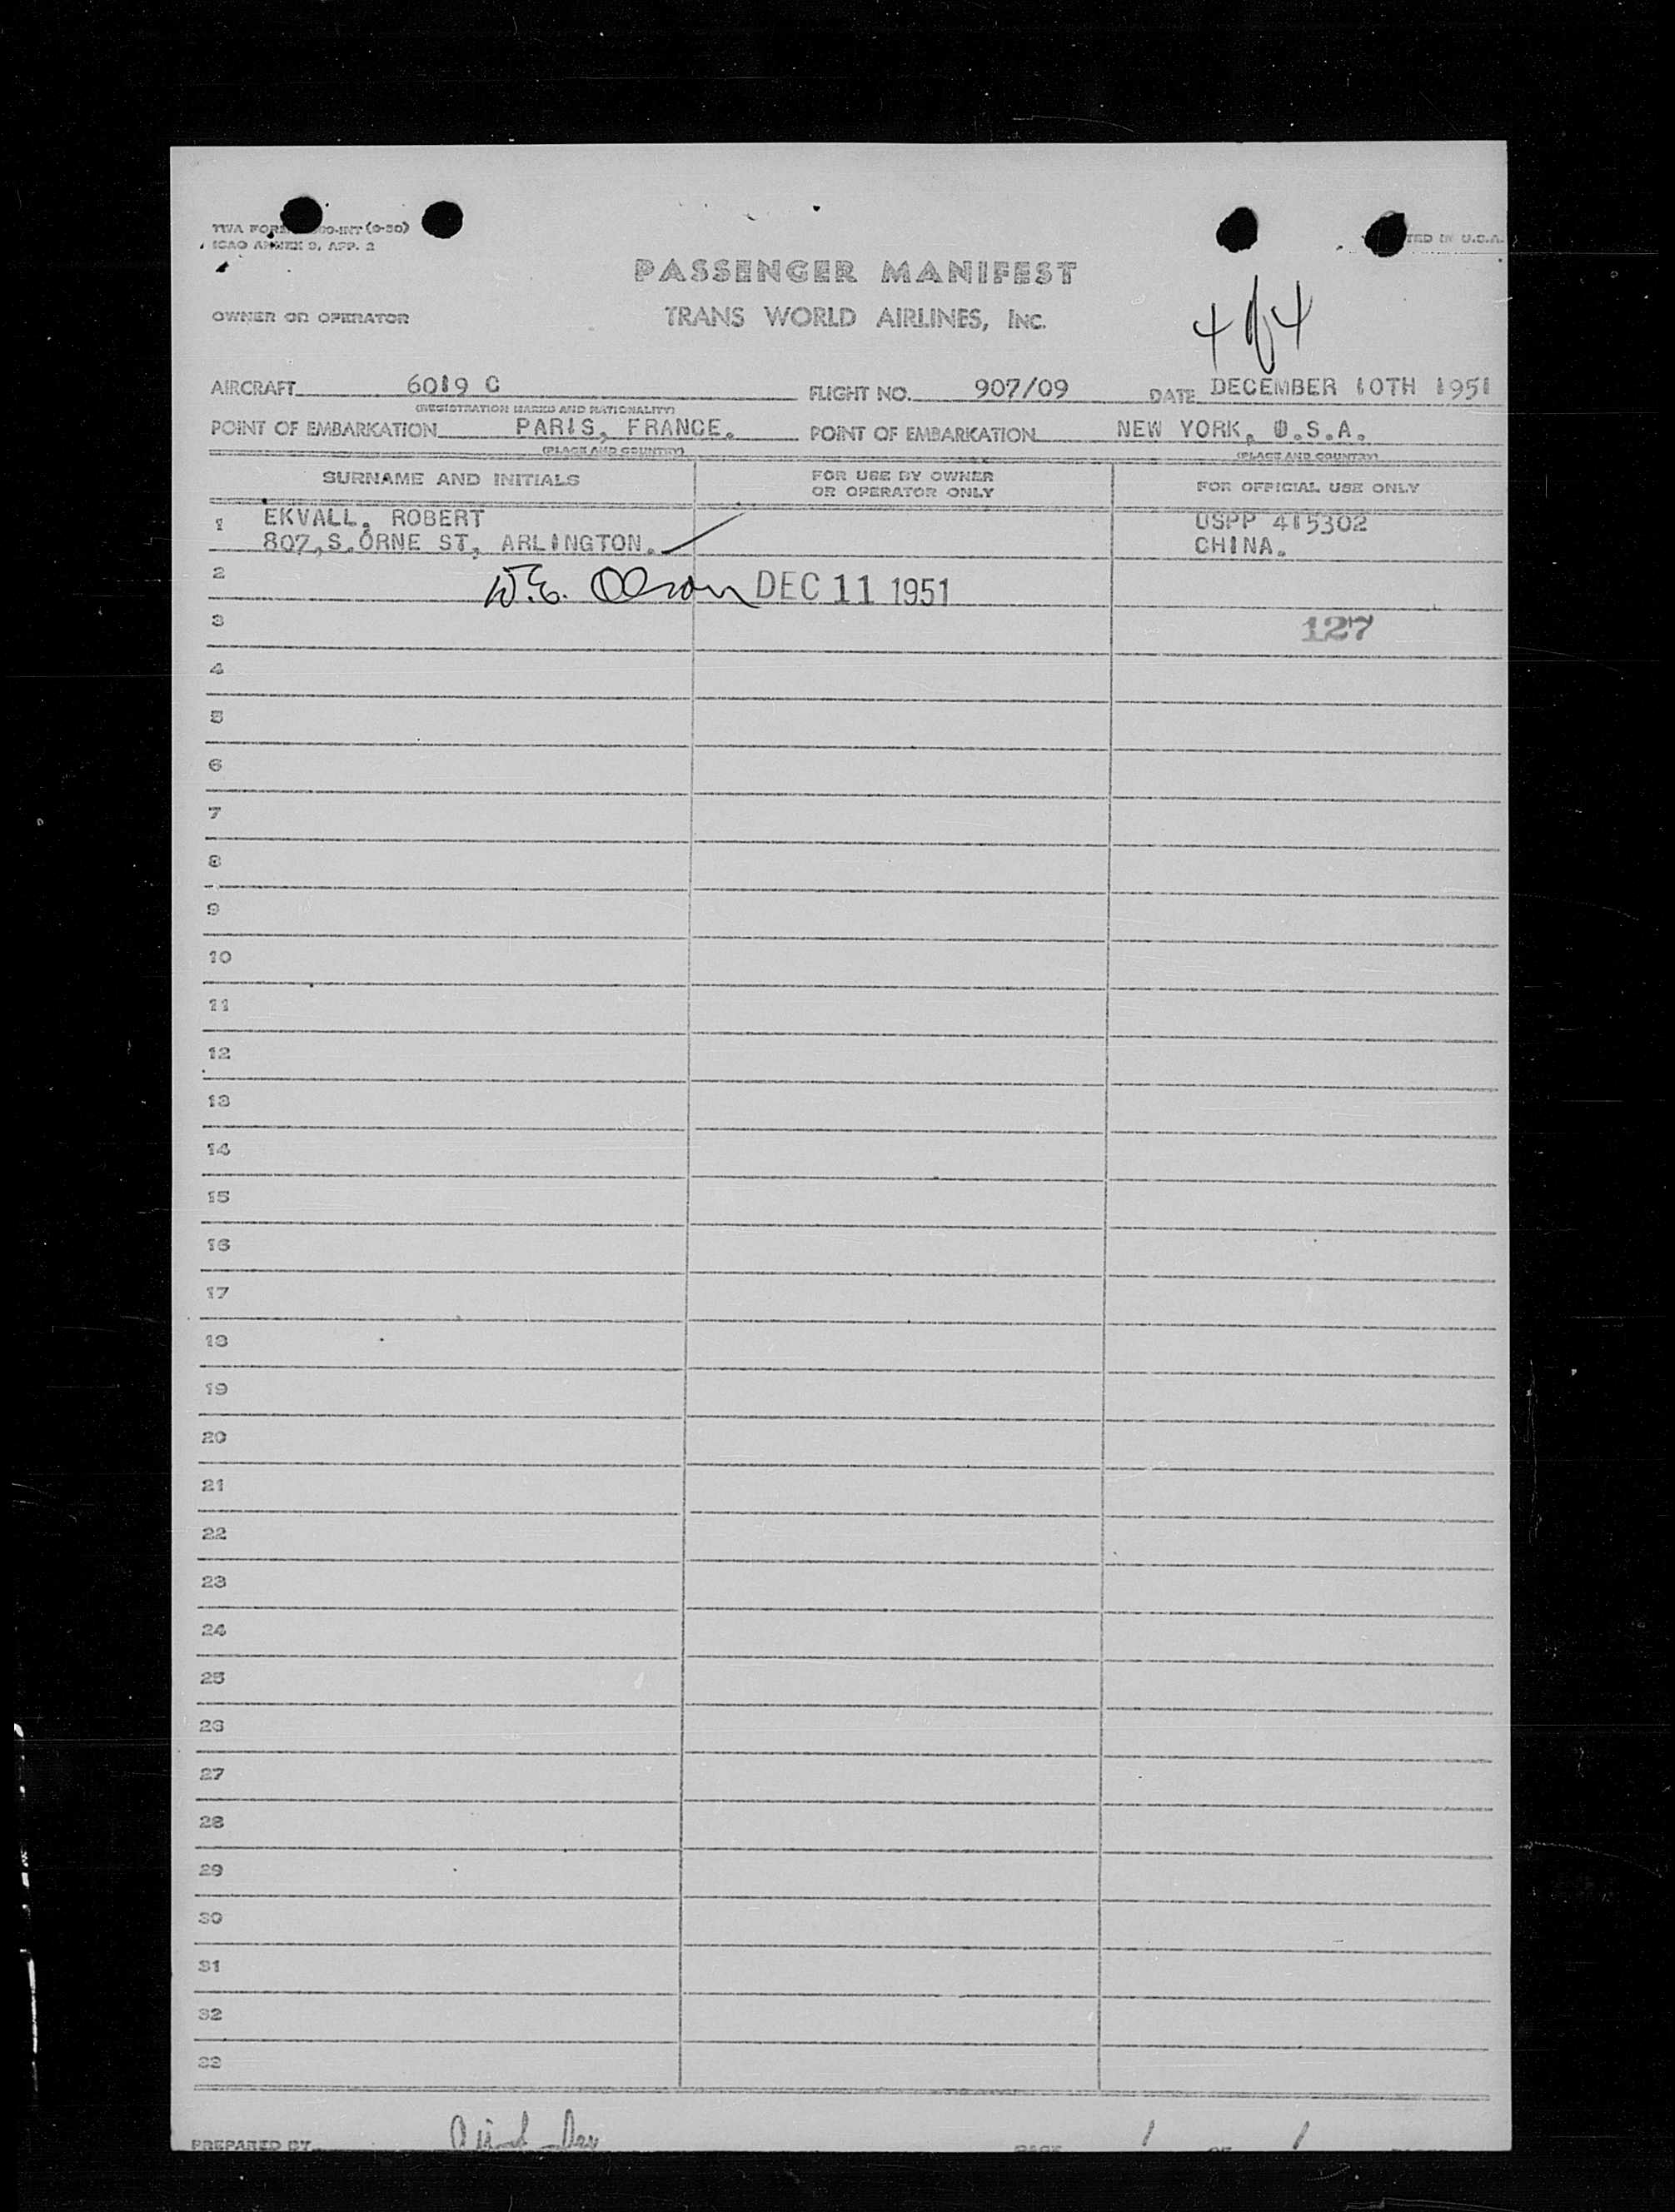 TWA FORM 00-INT (0-50)
ICAO ANNEX 9, APP. 2
TED IN U.S.A.
PASSENGER MANIFEST
OWNER OR OPERATOR TRANS WORLD AIRLINES, INC. 4 of 4
AIRCRAFT 6019 C FLIGHT NO. 907/09 DATE DECEMBER 10TH 1951
(REGISTRATION MARKS AND NATIONALITY)
POINT OF EMBARKATION PARIS, FRANCE. POINT OF EMBARKATION NEW YORK, U.S.A.
(PLACE AND COUNTRY) (PLACE AND COUNTRY)
SURNAME AND INITIALS FOR USE BY OWNER OR OPERATOR ONLY FOR OFFICIAL USE ONLY
1 EKVALL, ROBERT USPP 415302
807,S.ORNE ST, ARLINGTON. CHINA.
2 W.E. Olson DEC 11 1951
3 127
4
5
6
7
8
9
10
11
12
13
14
15
16
17
18
19
20
21
22
23
24
25
26
27
28
29
30
31
32
33
PREPARED BY PAGE 1 OF 1